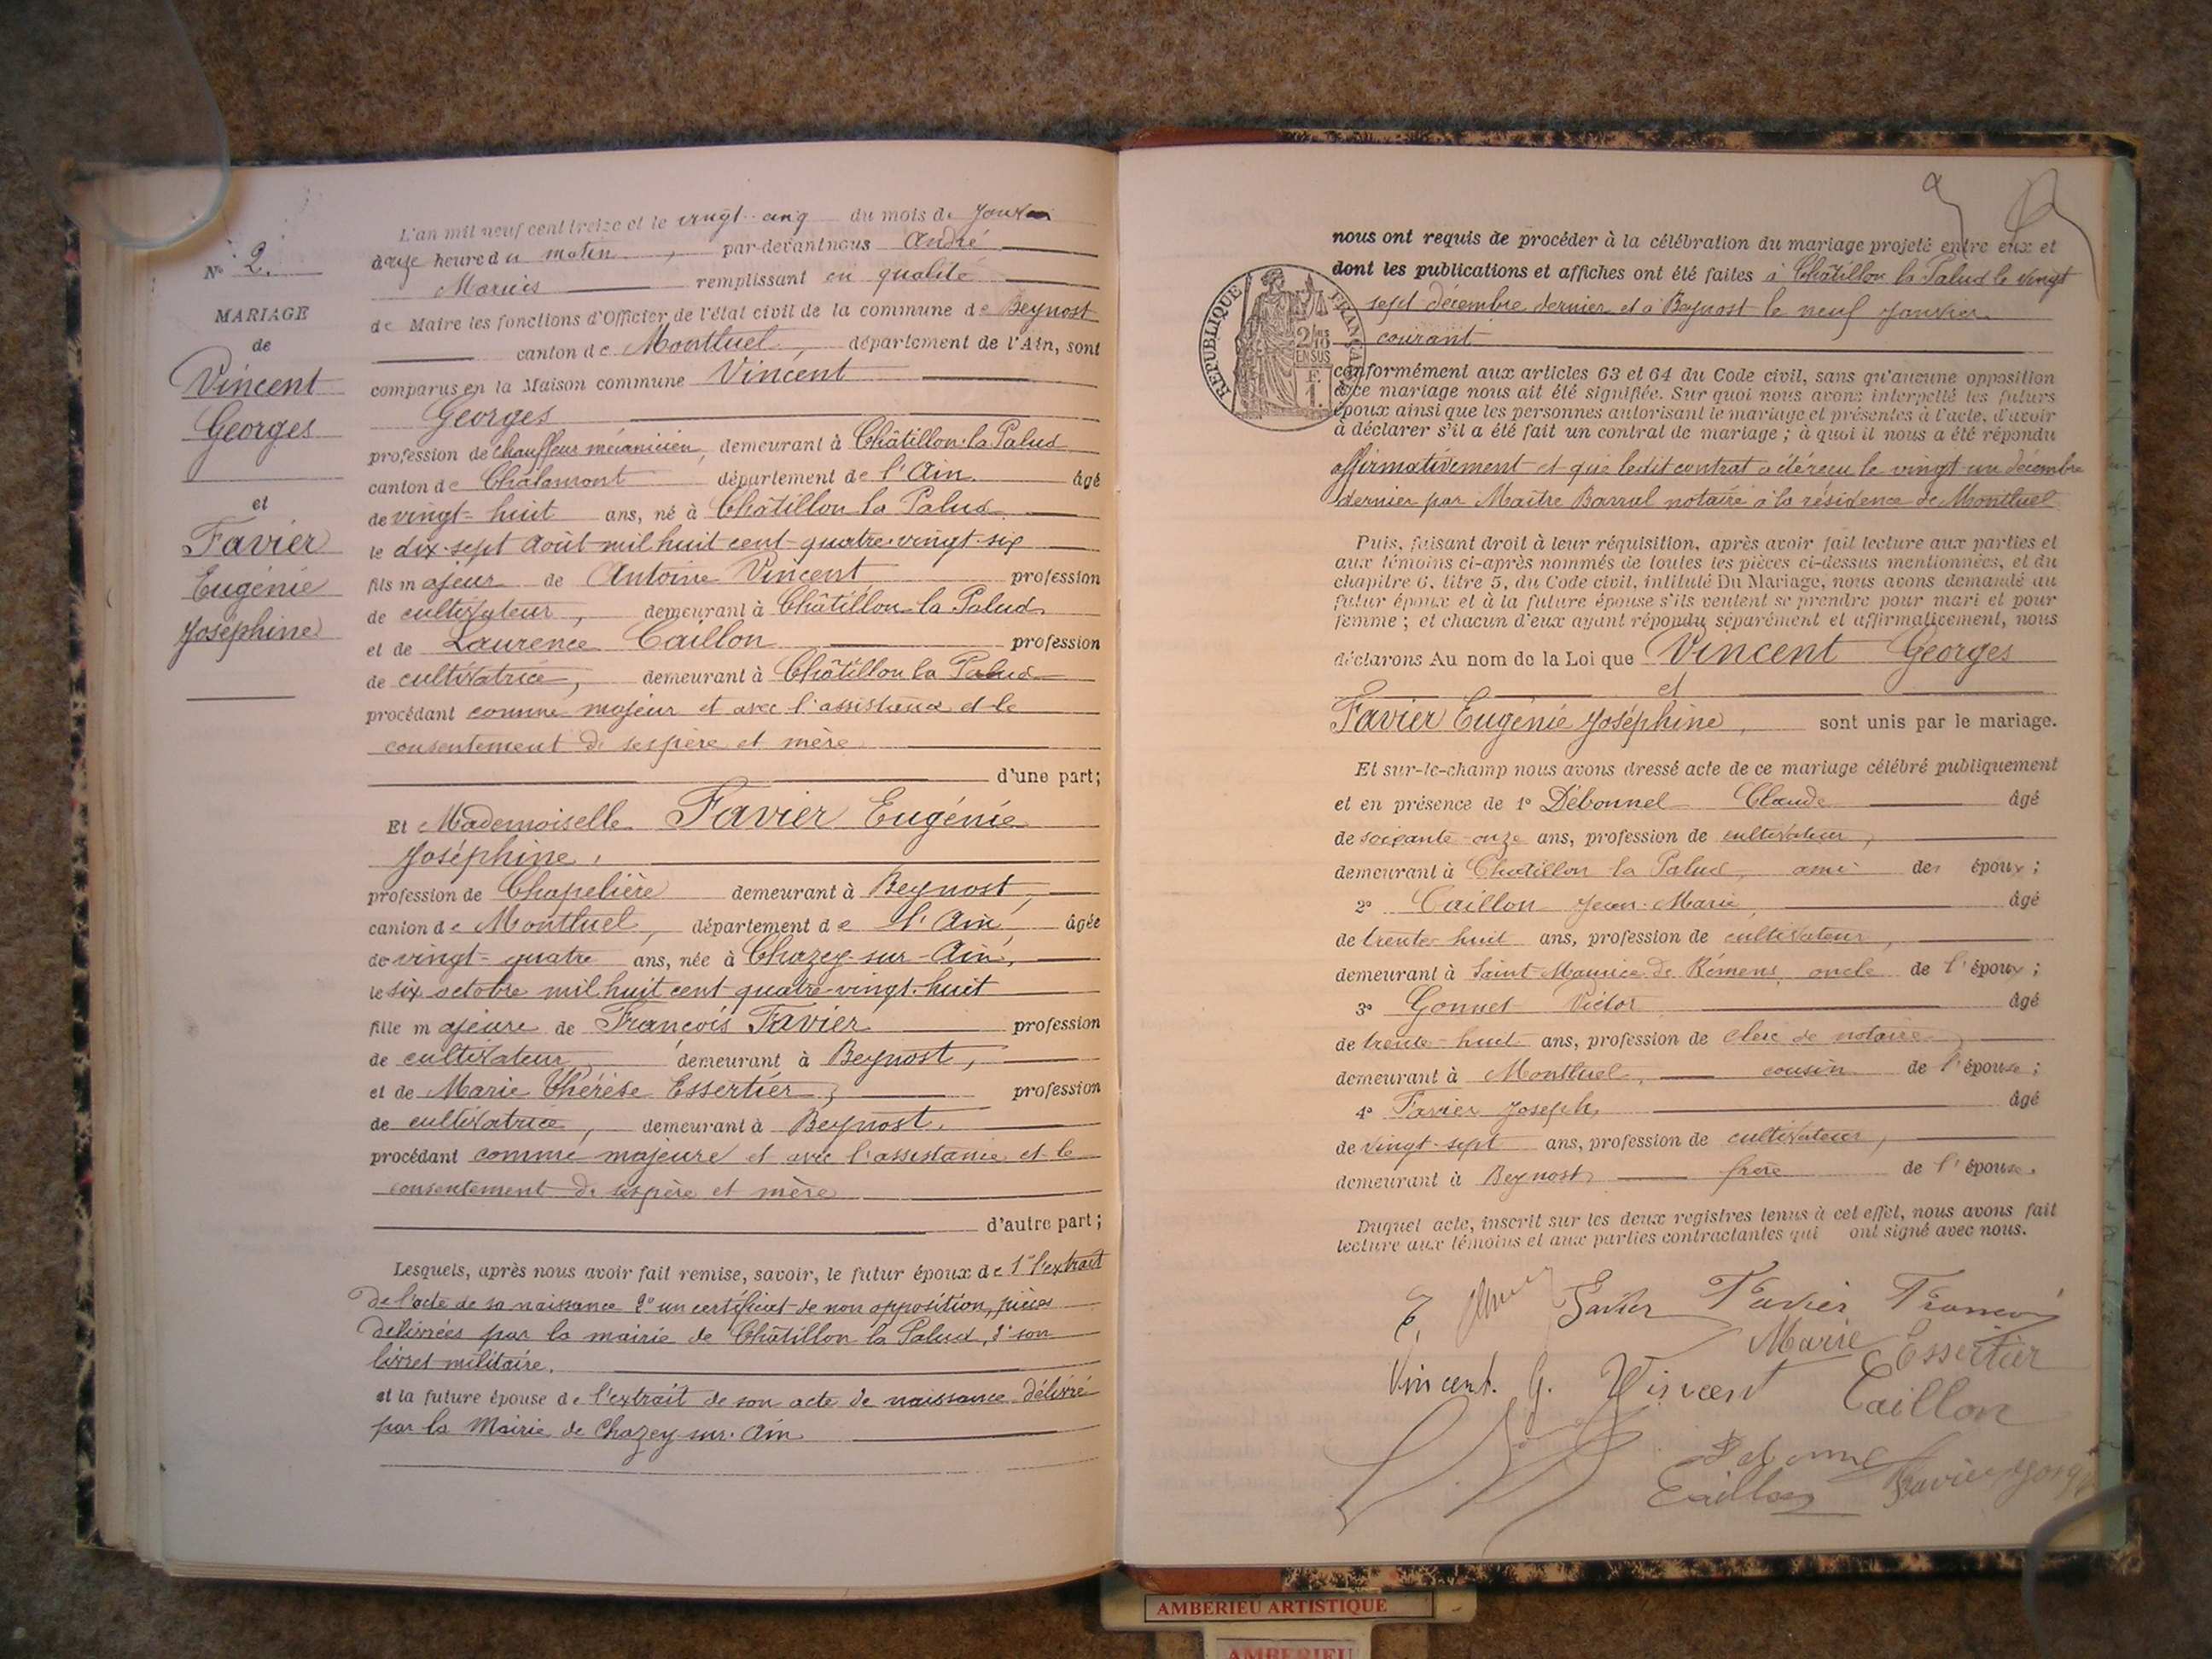 N° 2.
MARIAGE
de
Vincent
Georges
et
Favier
Eugénie
Joséphine
L'an mil neuf cent treize et le vingt-cinq du mois de Janvier
à onze heure du matin, par-devant nous André
Marius remplissant en qualité
de Maire les fonctions d'Officier de l'état civil de la commune de Beynost
canton de Montluel, département de l'Ain, sont
comparus en la Maison commune Vincent
Georges
profession de chauffeur mécanicien, demeurant à Châtillon-la-Palud
canton de Chalamont département de l'Ain. âgé
de vingt-huit ans, né à Châtillon la Palud
le dix-sept Août mil huit cent quatre-vingt-six
fils majeur de Antoine Vincent profession
de cultivateur, demeurant à Châtillon la Palud
et de Laurence Caillon profession
de cultivatrice, demeurant à Châtillon la Palud
procédant comme majeur et avec l'assistance et le
consentement de ses père et mère
d'une part;
Et Mademoiselle Favier Eugénie
Joséphine,
profession de Chapelière demeurant à Beynost,
canton de Montluel, département de l'Ain, âgée
de vingt-quatre ans, née à Chazey-sur-Ain,
le six octobre mil huit cent quatre-vingt-huit
fille majeure de François Favier profession
de cultivateur, demeurant à Beynost,
et de Marie Thérèse Essertier, profession
de cultivatrice, demeurant à Beynost.
procédant comme majeure et avec l'assistance et le
consentement de ses père et mère
d'autre part;
Lesquels, après nous avoir fait remise, savoir, le futur époux de 1° l'extrait
de l'acte de sa naissance 2° un certificat de non opposition, pièces
délivrées par la mairie de Châtillon la Palud, 3° son
livret militaire.
et la future épouse de l'extrait de son acte de naissance délivré
par la Mairie de Chazey-sur-Ain
nous ont requis de procéder à la célébration du mariage projeté entre eux et
dont les publications et affiches ont été faites à Châtillon la Palud le vingt
sept décembre dernier et à Beynost le neuf Janvier
courant
RÉPUBLIQUE FRANÇAISE
2/10
EN SUS
F.
1.
conformément aux articles 63 et 64 du Code civil, sans qu'aucune opposition
à ce mariage nous ait été signifiée. Sur quoi nous avons interpellé les futurs
époux ainsi que les personnes autorisant le mariage et présentes à l'acte, d'avoir
à déclarer s'il a été fait un contrat de mariage; à quoi il nous a été répondu
affirmativement et que ledit contrat a été reçu le vingt-un décembre
dernier par Maître Barral notaire à la résidence de Montluel
Puis, faisant droit à leur réquisition, après avoir fait lecture aux parties et
aux témoins ci-après nommés de toutes les pièces ci-dessus mentionnées, et du
chapitre 6, titre 5, du Code civil, intitulé Du Mariage, nous avons demandé au
futur époux et à la future épouse s'ils veulent se prendre pour mari et pour
femme; et chacun d'eux ayant répondu séparément et affirmativement, nous
déclarons Au nom de la Loi que Vincent Georges
et
Favier Eugénie Joséphine, sont unis par le mariage.
Et sur-le-champ nous avons dressé acte de ce mariage célébré publiquement
et en présence de 1° Débonnel Claude âgé
de soixante-onze ans, profession de cultivateur,
demeurant à Chatillon la Palud, ami des époux;
2° Caillon Jean-Marie, âgé
de trente-huit ans, profession de cultivateur,
demeurant à Saint-Maurice de Rémens, oncle de l'époux;
3° Gonnet Victor âgé
de trente-huit ans, profession de clerc de notaire,
demeurant à Montluel, cousin de l'épouse;
4° Favier Joseph, âgé
de vingt-sept ans, profession de cultivateur,
demeurant à Beynost frère de l'épouse.
Duquel acte, inscrit sur les deux registres tenus à cet effet, nous avons fait
lecture aux témoins et aux parties contractantes qui ont signé avec nous.
Favier Favier François
Marie Essertier
Vincent. G. Vincent Caillon
Caillon Favier Joseph
AMBERIEU ARTISTIQUE
AMBERIEU